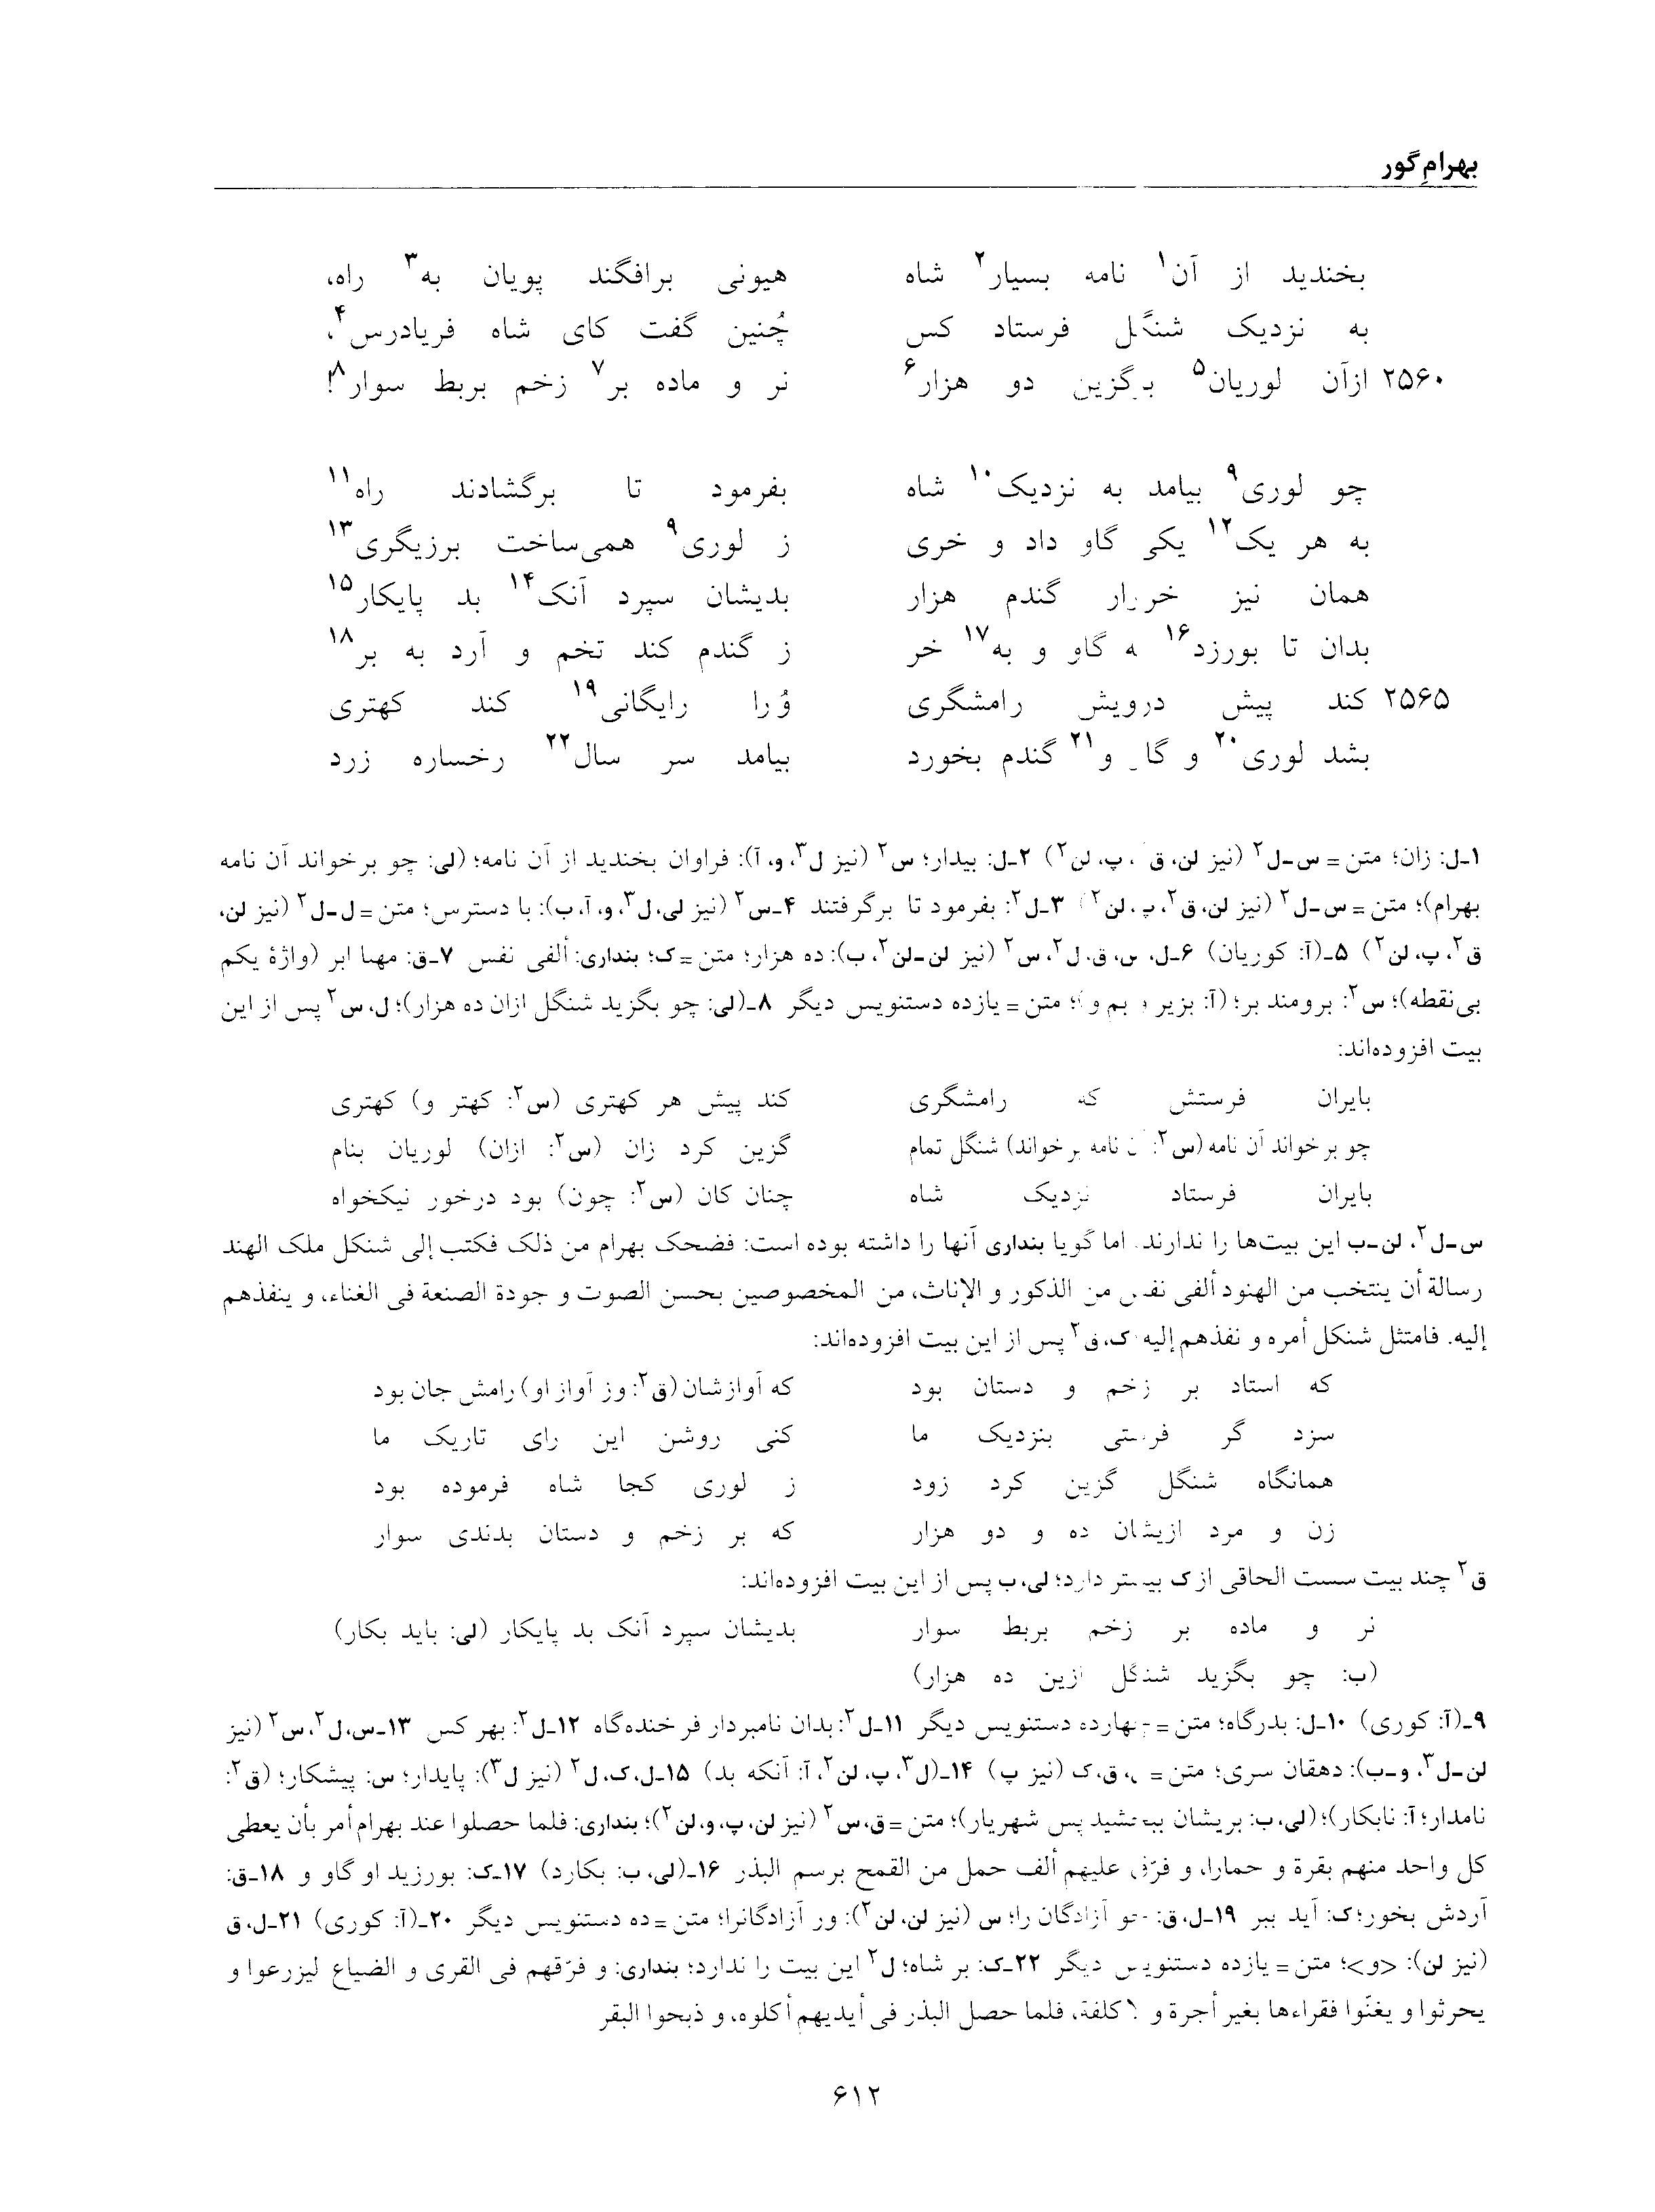 بهرامِ گور
بخندید از آن۱ نامه بسیار۲ شاه هیونی برافگند پویان به۳ راه،
به نزدیک شنگل فرستاد کس چُنین گفت کای شاه فریادرس۴،
۲۵۶۰ ازآن لوریان۵ برگزین دو هزار۶ نر و ماده بر۷ زخم بربط سوار۸!
چو لوری۹ بیامد به نزدیک۱۰ شاه بفرمود تا برگشادند راه۱۱
به هر یک۱۲ یکی گاو داد و خری ز لوری۹ همی‌ساخت برزیگری۱۳
همان نیز خروار گندم هزار بدیشان سپرد آنک۱۴ بد پایکار۱۵
بدان تا بورزد۱۶ به گاو و به۱۷ خر ز گندم کند تخم و آرد به بر۱۸
۲۵۶۵ کند پیش درویش رامشگری وُرا رایگانی۱۹ کند کهتری
بشد لوری۲۰ و گاو و۲۱ گندم بخورد بیامد سر سال۲۲ رخساره زرد
۱ـ‌ل: زان؛ متن = س‌ـ‌ل۲ (نیز لن، ق۲، پ، لن۲) ۲ـ‌ل: بیدار؛ س۲ (نیز ل۳، و، آ): فراوان بخندید از آن نامه؛ (لی: چو برخواند آن نامه
بهرام)؛ متن = س‌ـ‌ل۲ (نیز لن، ق۲، پ، لن۲) ۳ـ‌ل۲: بفرمود تا برگرفتند ۴ـ‌س۲ (نیز لی، ل۳، و، آ، ب): با دسترس؛ متن = ل‌ـ‌ل۲ (نیز لن،
ق۲، پ، لن۲) ۵ـ(آ: کوریان) ۶ـ‌ل، س، ق، ل۲، س۲ (نیز لن‌ـ‌لن۲، ب): ده هزار؛ متن = ک؛ بنداری: ألفی نفس ۷ـ‌ق: مهیا ابر (واژهٔ یکم
بی‌نقطه)؛ س۲: برومند بر؛ (آ: بزیر و بم و)؛ متن = یازده دستنویس دیگر ۸ـ(لی: چو بگزید شنگل ازان ده هزار)؛ ل، س۲ پس از این
بیت افزوده‌اند:
بایران فرستش که رامشگری کند پیش هر کهتری (س۲: کهتر و) کهتری
چو برخواند آن نامه (س۲: آن نامه برخواند) شنگل تمام گزین کرد زان (س۲: ازان) لوریان بنام
بایران فرستاد نزدیک شاه چنان کان (س۲: چون) بود درخور نیکخواه
س‌ـ‌ل۲، لن‌ـ‌ب این بیت‌ها را ندارند. اما گویا بنداری آنها را داشته بوده است: فضحک بهرام من ذلک فکتب إلی شنکل ملک الهند
رسالة أن ینتخب من الهنود ألفی نفس من الذکور و الإناث، من المخصوصین بحسن الصوت و جودة الصنعة فی الغناء، و ینفذهم
إلیه. فامتثل شنکل أمره و نفذهم إلیه؛ ک، ق۲ پس از این بیت افزوده‌اند:
که استاد بر زخم و دستان بود که آوازشان (ق۲: وز آواز او) رامش جان بود
سزد گر فرستی بنزدیک ما کنی روشن این رای تاریک ما
همانگاه شنگل گزین کرد زود ز لوری کجا شاه فرموده بود
زن و مرد ازیشان ده و دو هزار که بر زخم و دستان بدندی سوار
ق۲ چند بیت سست الحاقی از ک بیشتر دارد؛ لی، ب پس از این بیت افزوده‌اند:
نر و ماده بر زخم بربط سوار بدیشان سپرد آنک بد پایکار (لی: باید بکار)
(ب: چو بگزید شنگل ازین ده هزار)
۹ـ(آ: کوری) ۱۰ـ‌ل: بدرگاه؛ متن = چهارده دستنویس دیگر ۱۱ـ‌ل۲: بدان نامبردار فرخنده‌گاه ۱۲ـ‌ل۲: بهر کس ۱۳ـ‌س، ل۲، س۲ (نیز
لن‌ـ‌ل۳، و‌ـ‌ب): دهقان سری؛ متن = ل، ق، ک (نیز پ) ۱۴ـ(ل۳، پ، لن۲، آ: آنکه بد) ۱۵ـ‌ل، ک، ل۲ (نیز ل۳): پایدار؛ س: پیشکار؛ (ق۲:
نامدار؛ آ: نابکار)؛ (لی، ب: بریشان ببخشید پس شهریار)؛ متن = ق، س۲ (نیز لن، پ، و، لن۲)؛ بنداری: فلما حصلوا عند بهرام أمر بأن یعطی
کل واحد منهم بقرة و حمارا، و فرّق علیهم ألف حمل من القمح برسم البذر ۱۶ـ(لی، ب: بکارد) ۱۷ـ‌ک: بورزید او گاو و ۱۸ـ‌ق:
آردش بخور؛ ک: آید ببر ۱۹ـ‌ل، ق: چو آزادگان را؛ س (نیز لن، لن۲): ور آزادگانرا؛ متن = ده دستنویس دیگر ۲۰ـ(آ: کوری) ۲۱ـ‌ل، ق
(نیز لن): <و>؛ متن = یازده دستنویس دیگر ۲۲ـ‌ک: بر شاه؛ ل۲ این بیت را ندارد؛ بنداری: و فرّقهم فی القری و الضیاع لیزرعوا و
یحرثوا و یغنّوا فقراءها بغیر أجرة و لا کلفة، فلما حصل البذر فی أیدیهم أکلوه، و ذبحوا البقر
۶۱۲